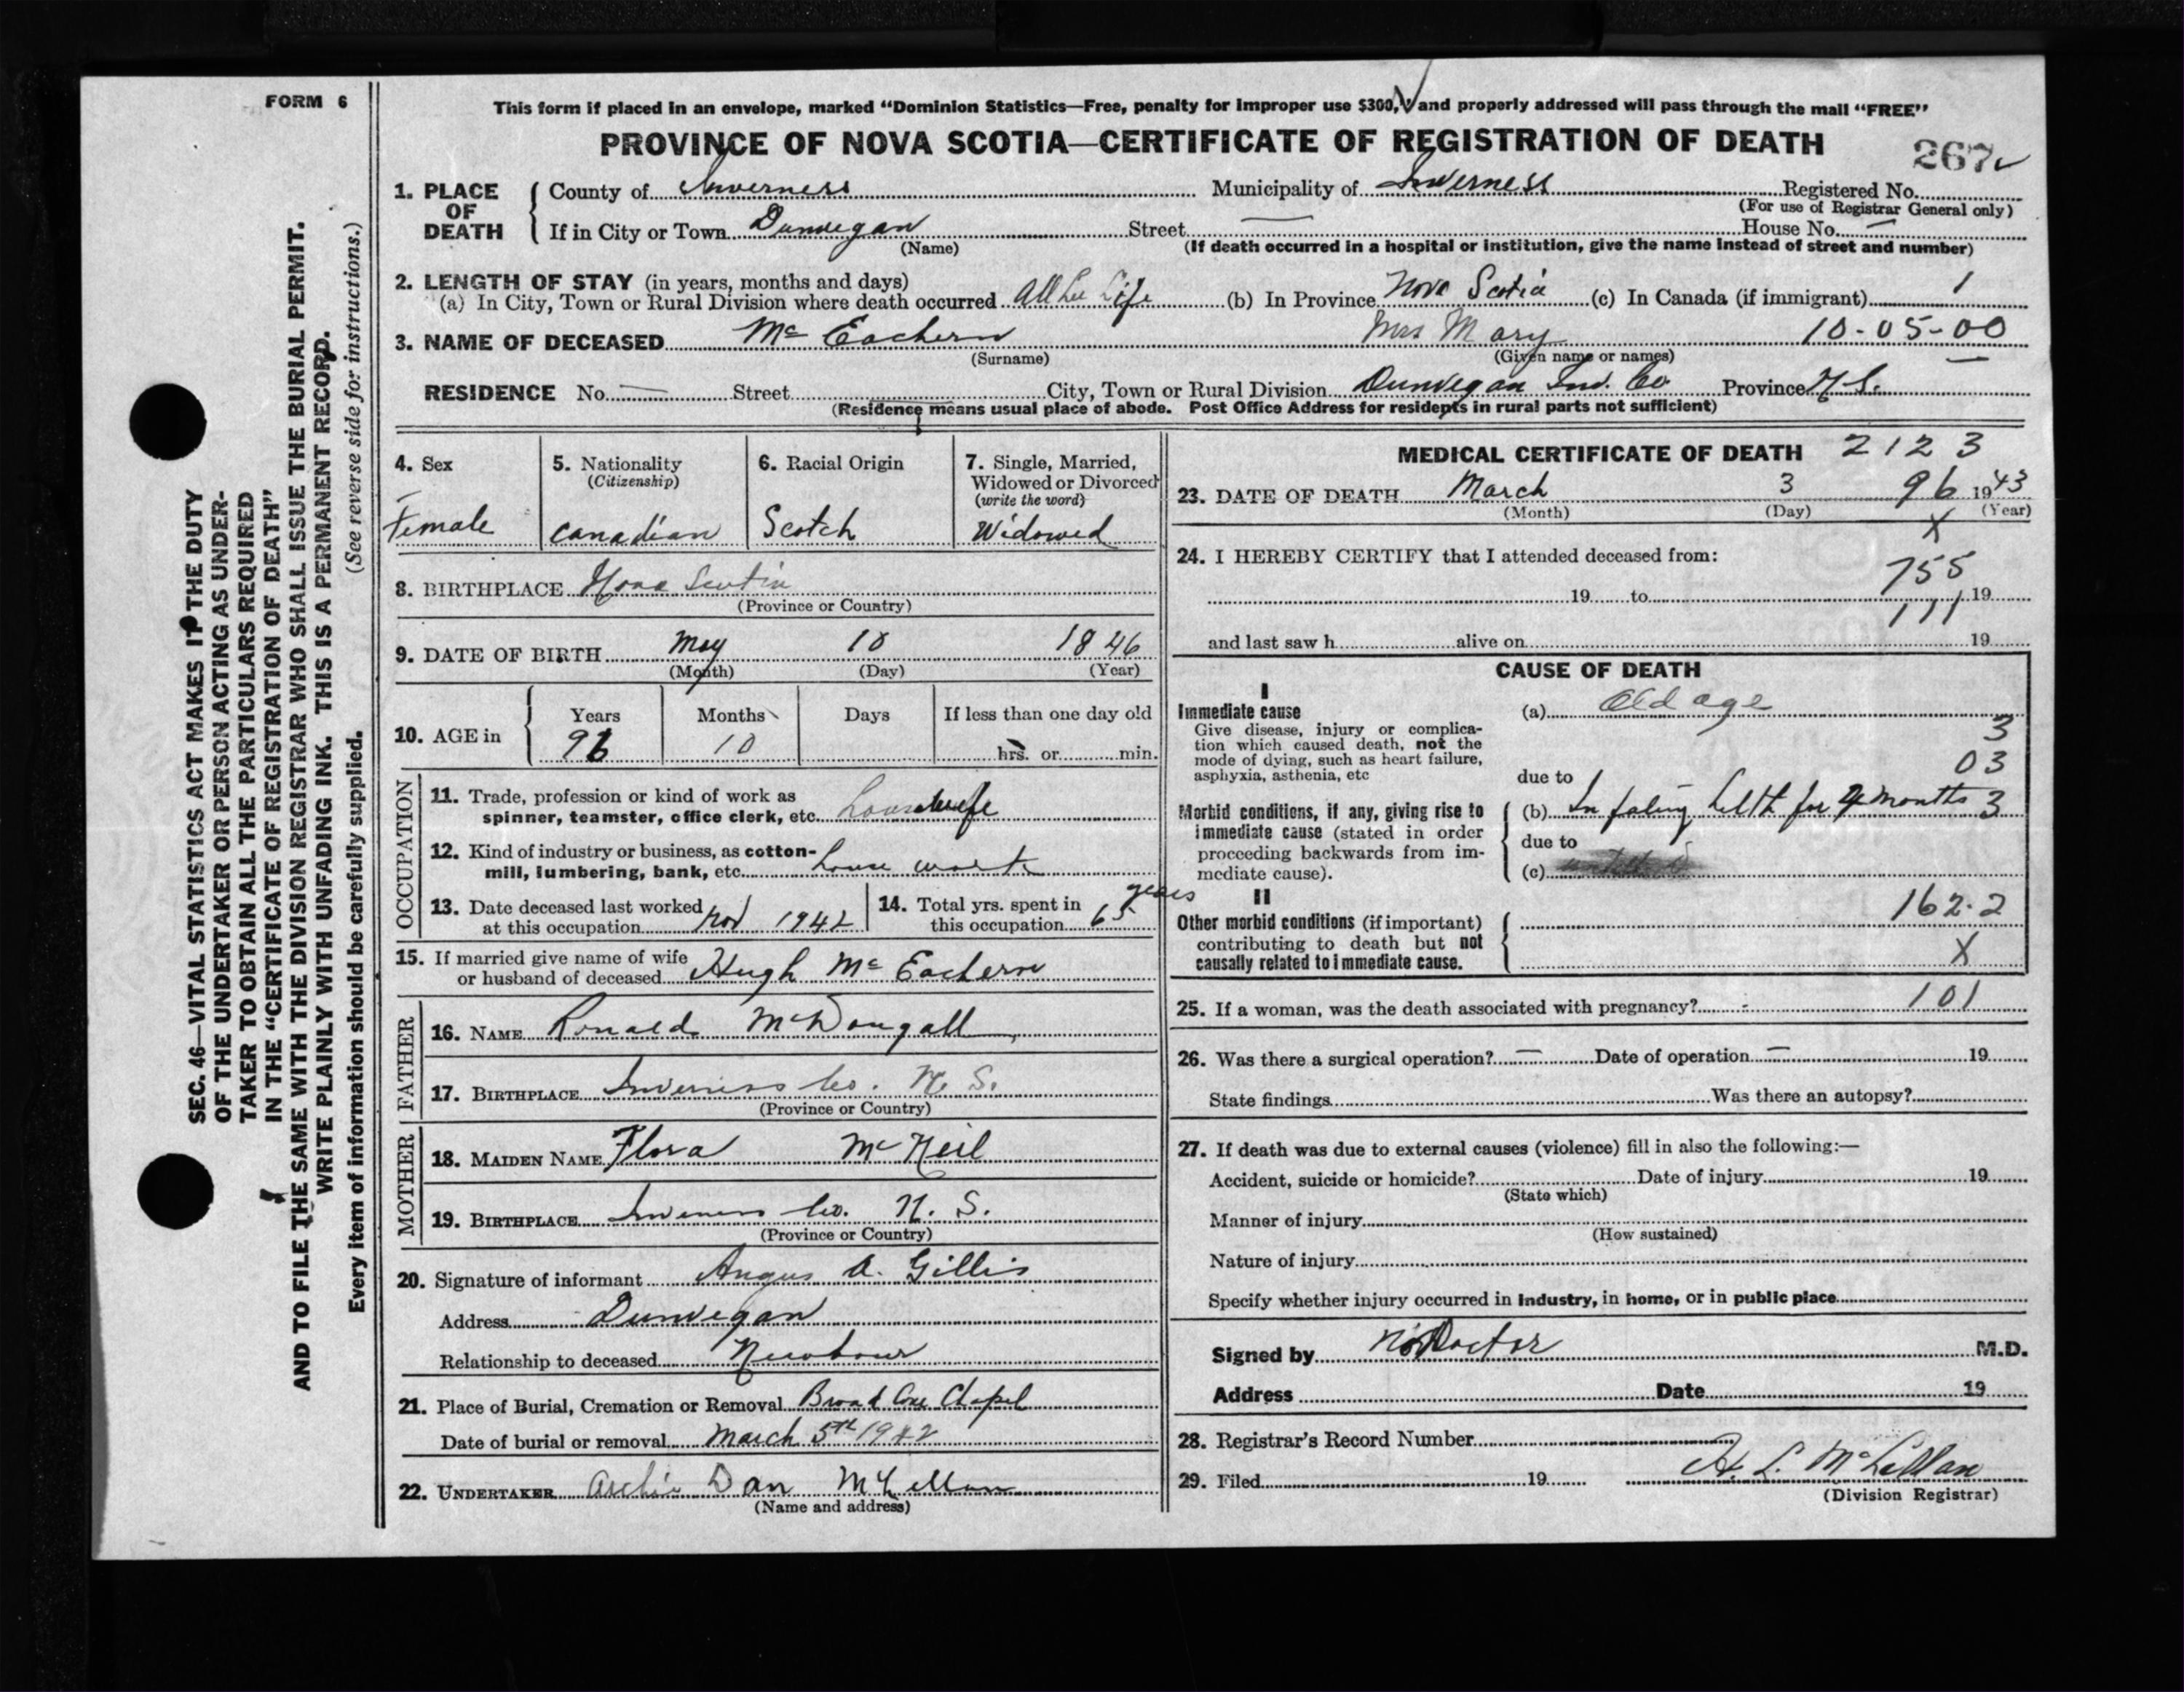 FORM 6
This form if placed in an envelope, marked “Dominion Statistics—Free, penalty for improper use $300,” and properly addressed will pass through the mail “FREE”
PROVINCE OF NOVA SCOTIA—CERTIFICATE OF REGISTRATION OF DEATH
267
1. PLACE OF DEATH
County of Inverness Municipality of Inverness Registered No.
(For use of Registrar General only)
If in City or Town Dunvegan Street — House No. —
(Name) (If death occurred in a hospital or institution, give the name instead of street and number)
2. LENGTH OF STAY (in years, months and days)
(a) In City, Town or Rural Division where death occurred All Life (b) In Province Nova Scotia (c) In Canada (if immigrant) 1
3. NAME OF DECEASED Mc Eachern Mrs Mary 10-05-00
(Surname) (Given name or names)
RESIDENCE No. — Street City, Town or Rural Division Dunvegan Inv. Co Province N.S.
(Residence means usual place of abode. Post Office Address for residents in rural parts not sufficient)
4. Sex
Female
5. Nationality
(Citizenship)
Canadian
6. Racial Origin
Scotch
7. Single, Married,
Widowed or Divorced
(write the word)
Widowed
8. BIRTHPLACE Nova Scotia
(Province or Country)
9. DATE OF BIRTH May 10 1846
(Month) (Day) (Year)
10. AGE in
Years Months Days If less than one day old
96 10 hrs. or min.
OCCUPATION
11. Trade, profession or kind of work as
spinner, teamster, office clerk, etc. housewife
12. Kind of industry or business, as cotton-
mill, lumbering, bank, etc. house work
13. Date deceased last worked
at this occupation Nov 1942
14. Total yrs. spent in
this occupation 65 years
15. If married give name of wife
or husband of deceased Hugh Mc Eachern
FATHER
16. NAME Ronald McDougall
17. BIRTHPLACE Inverness Co. N. S.
(Province or Country)
MOTHER
18. MAIDEN NAME Flora Mc Neil
19. BIRTHPLACE Inverness Co. N. S.
(Province or Country)
20. Signature of informant Angus A. Gillis
Address Dunvegan
Relationship to deceased
21. Place of Burial, Cremation or Removal Broad Cove Chapel
Date of burial or removal March 5th 1942
22. UNDERTAKER Archie Dan McLellan
(Name and address)
MEDICAL CERTIFICATE OF DEATH 2123
23. DATE OF DEATH March 3 96 1943
(Month) (Day) (Year)
X
24. I HEREBY CERTIFY that I attended deceased from:
755
19 to 19
111
and last saw h alive on 19
CAUSE OF DEATH
I
Immediate cause
Give disease, injury or complica-
tion which caused death, not the
mode of dying, such as heart failure,
asphyxia, asthenia, etc
(a) Old age
3
03
due to
Morbid conditions, if any, giving rise to
immediate cause (stated in order
proceeding backwards from im-
mediate cause).
(b) In faling helth for 4 months 3
due to
(c)
II
Other morbid conditions (if important)
contributing to death but not
causally related to immediate cause.
162.2
X
25. If a woman, was the death associated with pregnancy? - 101
26. Was there a surgical operation? — Date of operation — 19
State findings Was there an autopsy?
27. If death was due to external causes (violence) fill in also the following:—
Accident, suicide or homicide? Date of injury 19
(State which)
Manner of injury
(How sustained)
Nature of injury
Specify whether injury occurred in industry, in home, or in public place
Signed by No Doctor M.D.
Address Date 19
28. Registrar's Record Number
29. Filed 19 H. L. McLellan
(Division Registrar)
SEC. 46—VITAL STATISTICS ACT MAKES IT THE DUTY
OF THE UNDERTAKER OR PERSON ACTING AS UNDER-
TAKER TO OBTAIN ALL THE PARTICULARS REQUIRED
IN THE “CERTIFICATE OF REGISTRATION OF DEATH”
AND TO FILE THE SAME WITH THE DIVISION REGISTRAR WHO SHALL ISSUE THE BURIAL PERMIT.
WRITE PLAINLY WITH UNFADING INK. THIS IS A PERMANENT RECORD.
Every item of information should be carefully supplied. (See reverse side for instructions.)